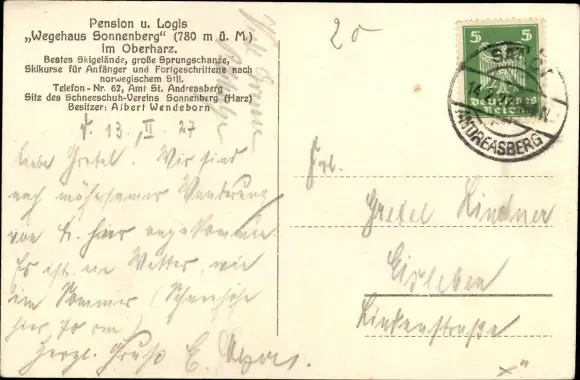 Pension u. Logis
„Wegehaus Sonnenberg" (780 m ü. M.)
im Oberharz.
Bestes Skigelände, große Sprungschanze,
Skikurse für Anfänger und Fortgeschrittene nach
norwegischem Stil.
Telefon-Nr. 62, Amt St. Andreasberg
Sitz des Schneeschuh-Vereins Sonnenberg (Harz)
Besitzer: Albert Wendeborn
d. 13. II. 27
Liebe Gretel. Wir sind
nach mühsamer Wanderung
von hier angekommen
Es ist ne Wetter, wie
im Sommer (Schneehöhe
hier 70 cm)
Herzl. Gruß E.
20
5 5
Deutsches
Reich
ANDREASBERG
Frl.
Gretel Lindner
Eisleben
Lindenstraße